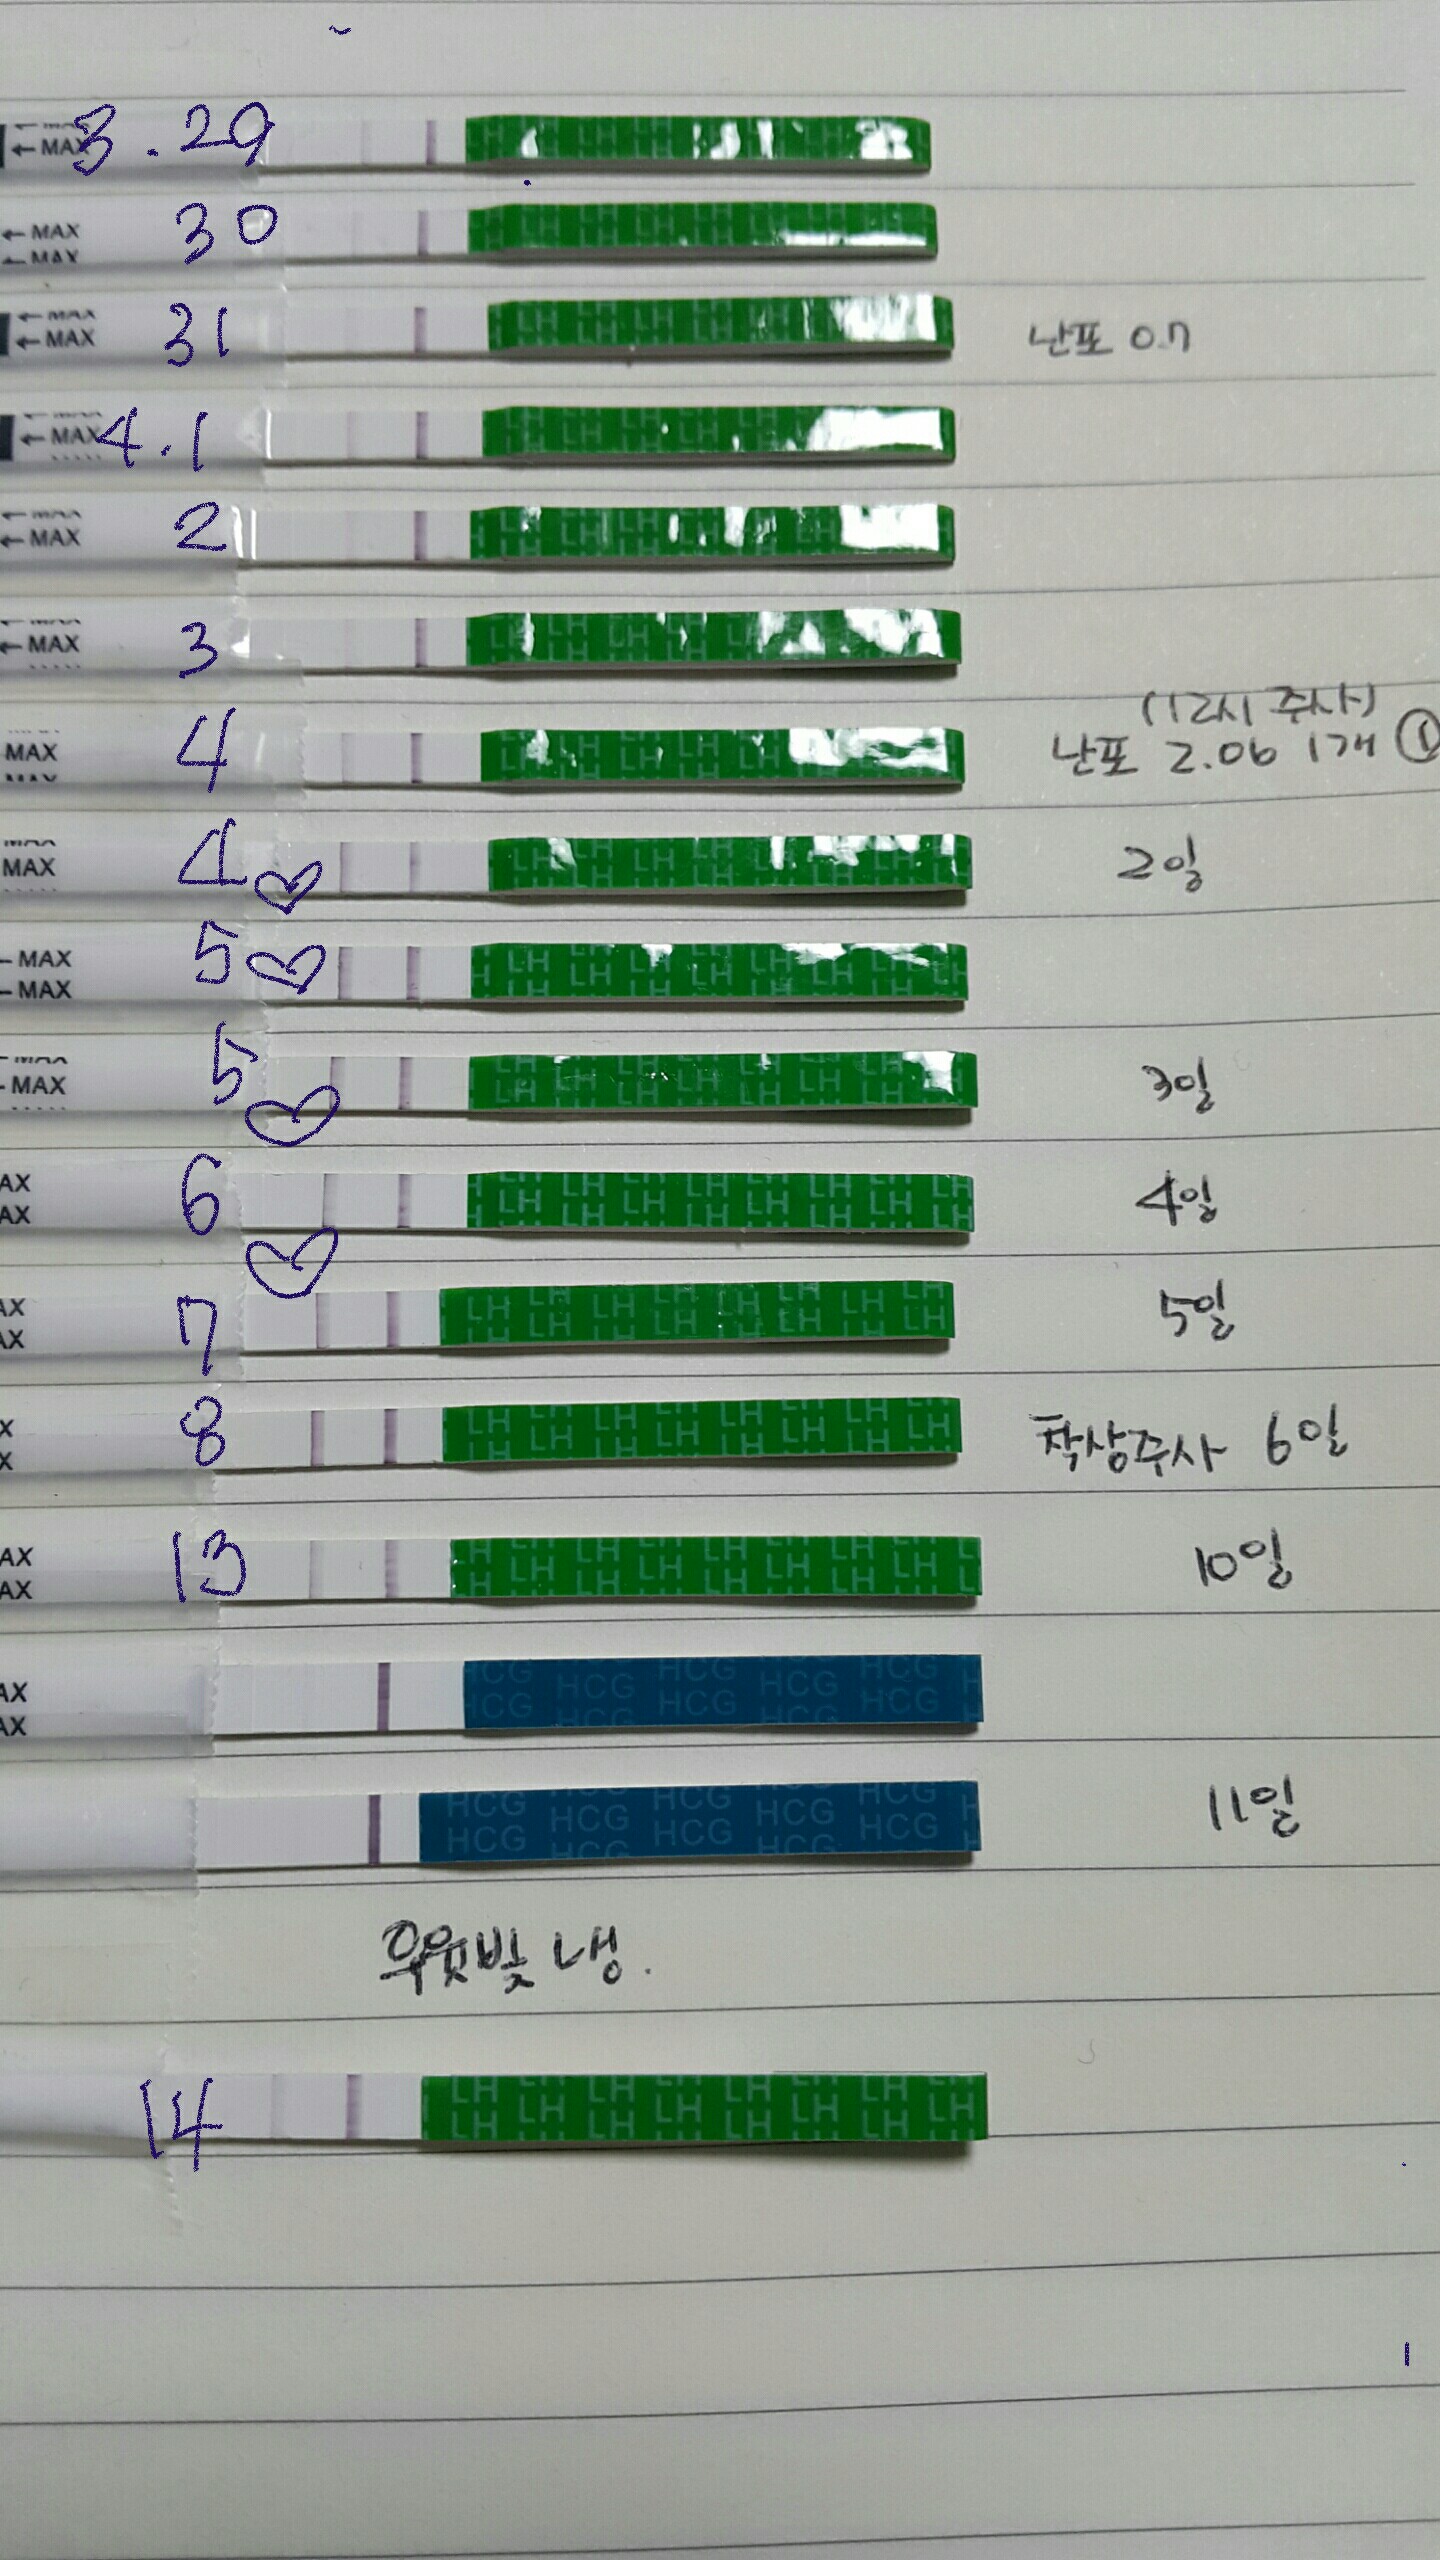 ← MAX 3.29 LH LH LH LH LH
← MAX 30 LH LH LH LH LH LH
← MAX
← MAX 31 LH LH LH LH LH 난포 0.7
← MAX 4.1 LH LH LH
← MAX 2 LH LH LH LH LH
← MAX 3 LH LH LH LH
(12시 주사)
MAX 4 LH LH LH LH 난포 2.06 1개 ①
MAX 4 LH LH LH LH LH 2일
← MAX 5 LH LH LH LH LH LH
← MAX
← MAX 5 LH LH LH LH LH LH 3일
AX 6 LH LH LH LH LH LH LH 4일
AX
AX 7 LH LH LH LH LH LH LH 5일
AX
X 8 LH LH LH LH LH LH LH 착상주사 6일
X
AX 13 LH LH LH LH LH LH LH 10일
AX
AX HCG HCG HCG HCG
AX HCG HCG HCG
HCG HCG HCG HCG HCG 11일
HCG HCG HCG
우윳빛 냉.
14 LH LH LH LH LH LH LH LH